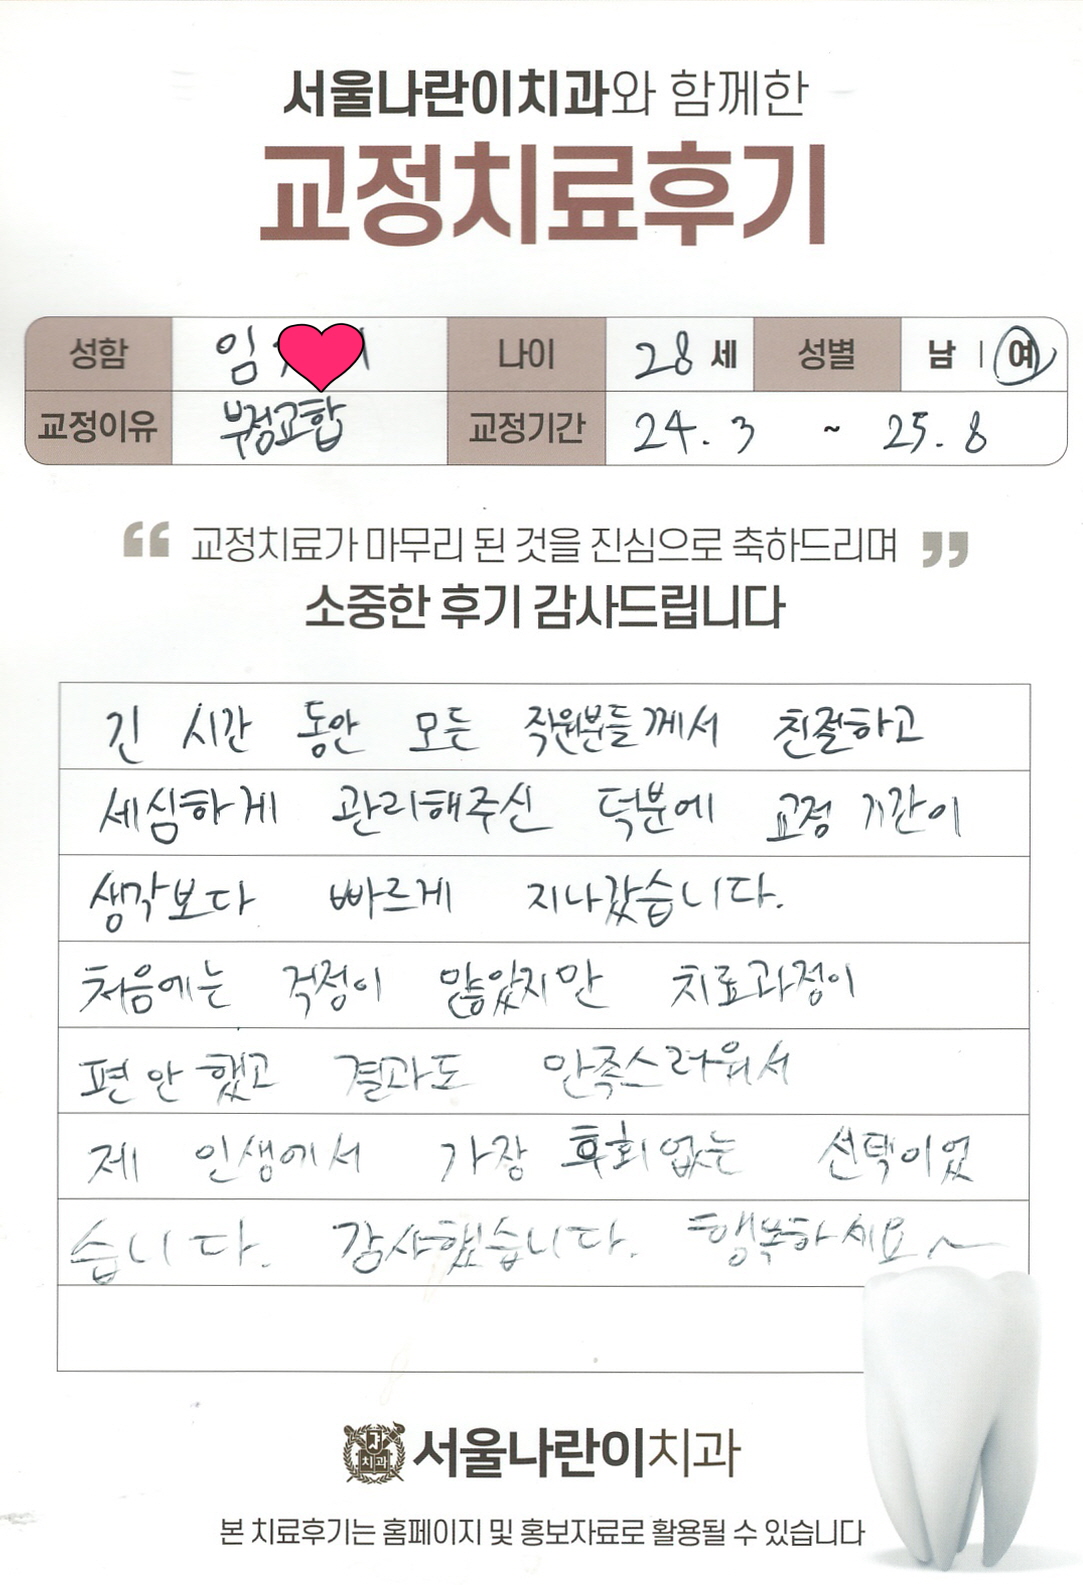 서울나란이치과와 함께한
교정치료후기
성함 임 나이 28 세 성별 남 | 여
교정이유 부정교합 교정기간 24. 3 ~ 25. 8
“ 교정치료가 마무리 된 것을 진심으로 축하드리며 ”
소중한 후기 감사드립니다
긴 시간 동안 모든 직원분들께서 친절하고
세심하게 관리해주신 덕분에 교정 기간이
생각보다 빠르게 지나갔습니다.
처음에는 걱정이 많았지만 치료과정이
편안했고 결과도 만족스러워서
제 인생에서 가장 후회없는 선택이었
습니다. 감사했습니다. 행복하세요~
치과
서울나란이치과
본 치료후기는 홈페이지 및 홍보자료로 활용될 수 있습니다